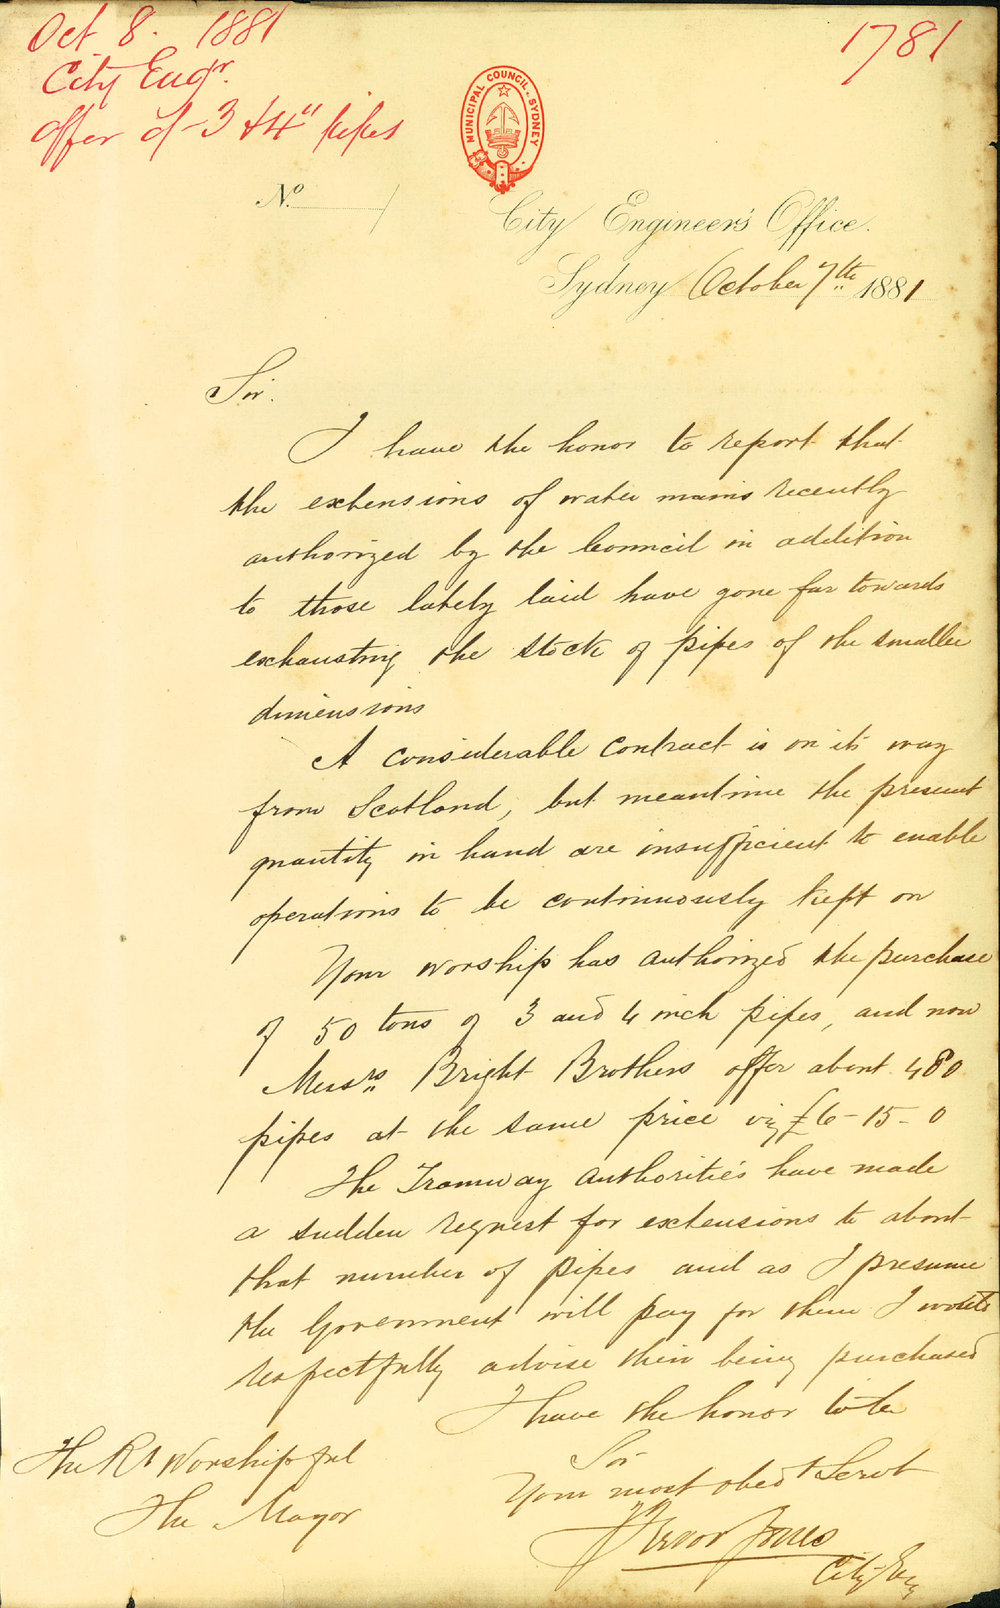 Oct 8. 1881
City Engr.
offer of 3 & 4" pipes
1781
MUNICIPAL COUNCIL. SYDNEY
No.
City Engineer's Office.
Sydney October 7th 1881
Sir.
I have the honor to report that
the extensions of water mains recently
authorized by the Council in addition
to those lately laid have gone far towards
exhausting the stock of pipes of the smaller
dimensions
A considerable contract is on its way
from Scotland, but meantime the present
quantity in hand are insufficient to enable
operations to be continuously kept on
Your worship has authorized the purchase
of 50 tons of 3 and 4 inch pipes, and now
Messrs Bright Brothers offer about 480
pipes at the same price viz £6-15-0
The Tramway authorities have made
a sudden request for extensions to about
that number of pipes and as I presume
the Government will pay for them I would
respectfully advise their being purchased
I have the honor to be
Sir
Your most obedt Servt
Trevor Jones
City Eng
The Rt Worshipful
The Mayor